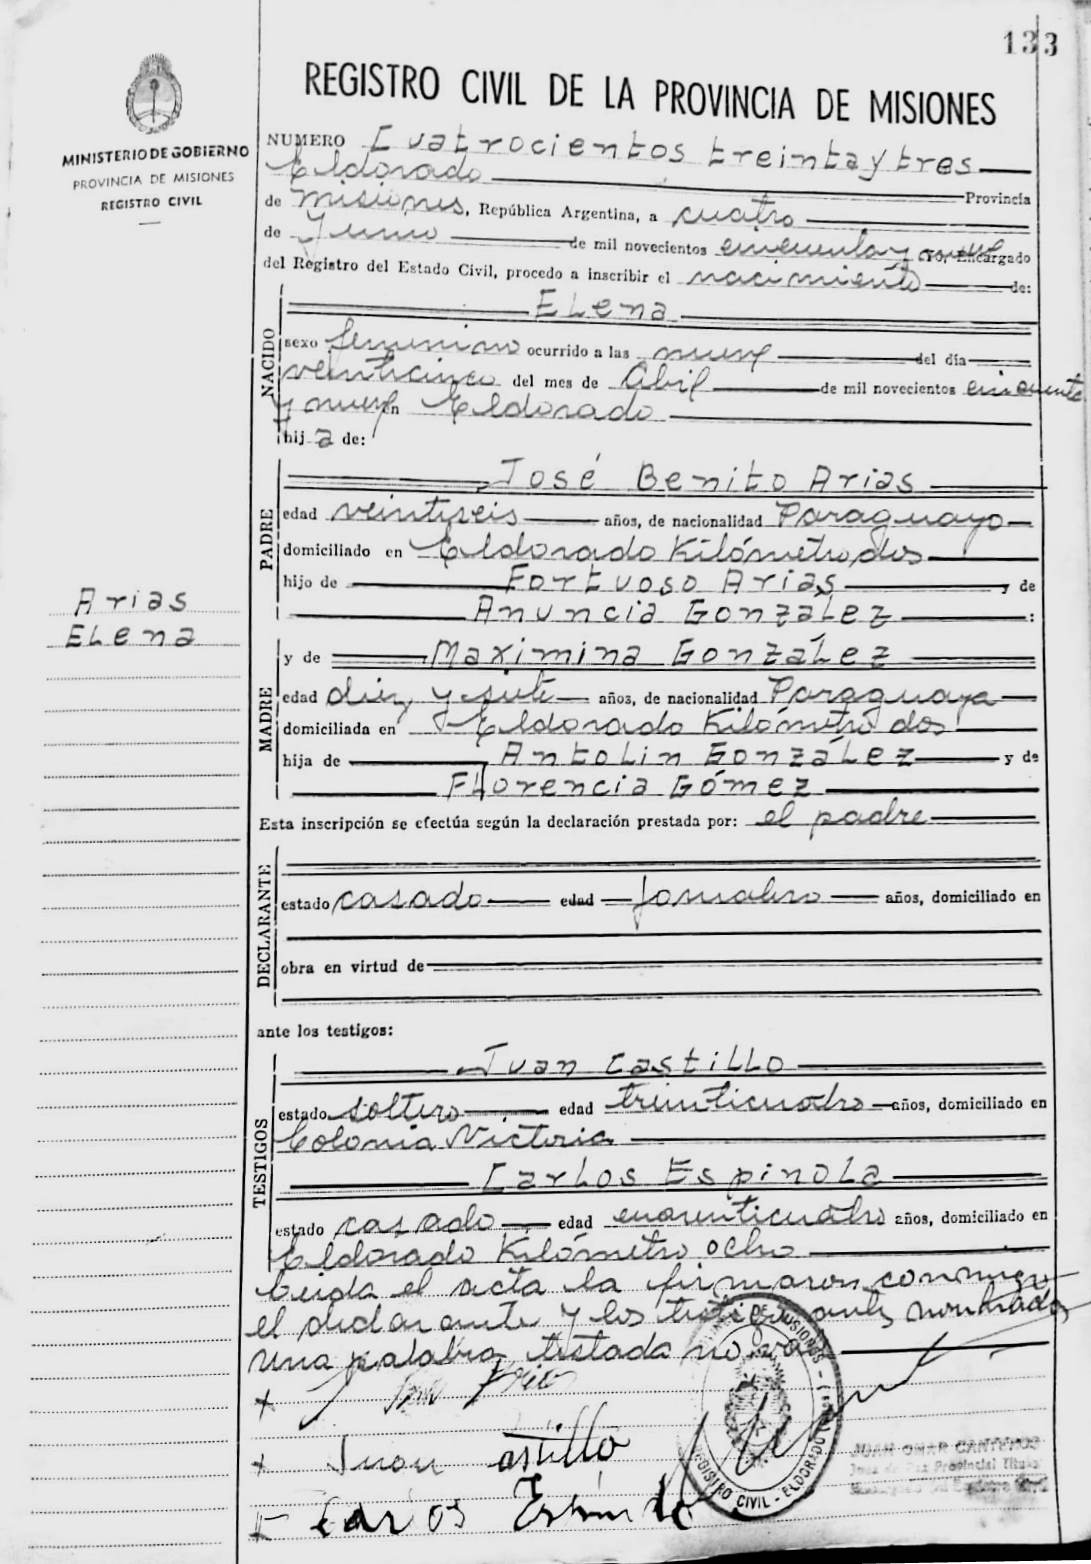 133
REGISTRO CIVIL DE LA PROVINCIA DE MISIONES
MINISTERIO DE GOBIERNO
PROVINCIA DE MISIONES
REGISTRO CIVIL
NUMERO Cuatrocientos treinta y tres
Eldorado Provincia
de Misiones, República Argentina, a cuatro
de Junio de mil novecientos cincuenta y nueve Yo, Encargado
del Registro del Estado Civil, procedo a inscribir el nacimiento de:
NACIDO
Elena
sexo femenino ocurrido a las nueve del día
veinticinco del mes de Abril de mil novecientos cincuenta
y nueve en Eldorado
hija de:
PADRE
José Benito Arias
edad veintiseis años, de nacionalidad Paraguayo
domiciliado en Eldorado Kilómetro dos
hijo de Fortuoso Arias y de
Anuncia Gonzalez :
Arias
Elena
MADRE
y de Maximina González
edad diez y siete años, de nacionalidad Paraguaya
domiciliada en Eldorado Kilómetro dos
hija de Antolin González y de
Florencia Gómez
Esta inscripción se efectúa según la declaración prestada por: el padre
DECLARANTE
estado casado edad jornalero años, domiciliado en
obra en virtud de
ante los testigos:
TESTIGOS
Juan Castillo
estado soltero edad treinticuatro años, domiciliado en
Colonia Victoria
Carlos Espinola
estado casado edad cuarenticuatro años, domiciliado en
Eldorado Kilómetro ocho
Leida el acta la firmaron conmigo
el declarante y los testigos antes nombrados
una palabra testada no vale
Juan Castillo
Carlos
DE MISIONES
REGISTRO CIVIL - ELDORADO
JUAN OMAR
Juez de Paz Provincial Titular